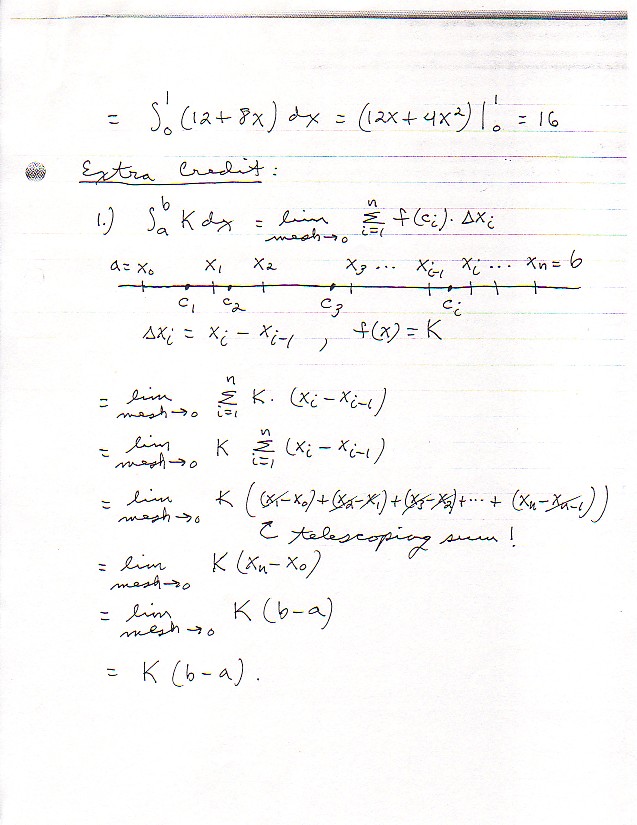 = ∫₀¹ (12 + 8x) dx = (12x + 4x²) |₀¹ = 16
Extra Credit:
1.) ∫ₐᵇ K dx = lim mesh→0 Σᵢ₌₁ⁿ f(cᵢ)·Δxᵢ
a = x₀ x₁ x₂ x₃ ... xᵢ₋₁ xᵢ ... xₙ = b
c₁ c₂ c₃ cᵢ
Δxᵢ = xᵢ - xᵢ₋₁ , f(x) = K
= lim mesh→0 Σᵢ₌₁ⁿ K·(xᵢ - xᵢ₋₁)
= lim mesh→0 K Σᵢ₌₁ⁿ (xᵢ - xᵢ₋₁)
= lim mesh→0 K ((x₁-x₀)+(x₂-x₁)+(x₃-x₂)+...+(xₙ-xₙ₋₁))
telescoping sum!
= lim mesh→0 K(xₙ - x₀)
= lim mesh→0 K(b-a)
= K(b-a).